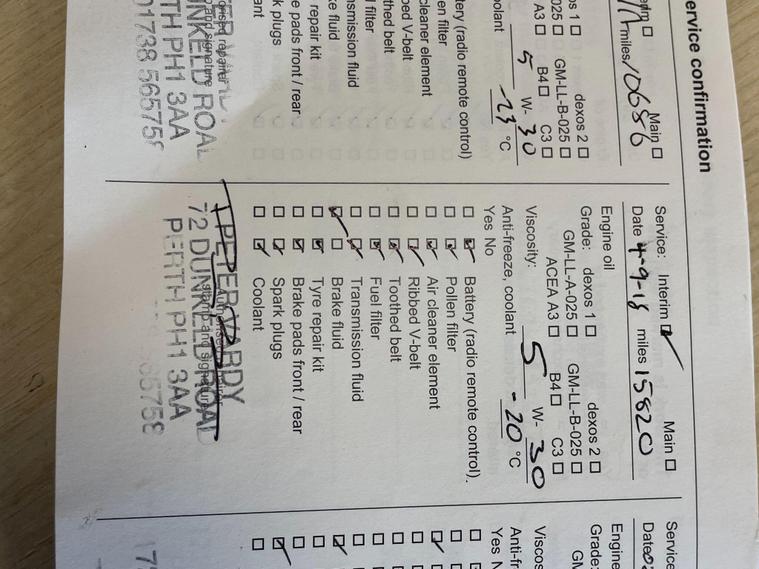 ervice confirmation
Main ☐
miles 10686
dexos 2 ☐
GM-LL-B-025 ☐
A3 ☐ B4 ☐ C3 ☐
5 W- 30
oolant -23 °C
ttery (radio remote control)
en filter
cleaner element
bed V-belt
thed belt
l filter
smission fluid
ke fluid
repair kit
e pads front / rear
k plugs
ant
and signature
NKELD ROA
TH PH1 3AA
01738 56575
Service: Interim ☑ Main ☐
Date 4-9-18 miles 15820
Engine oil
Grade: dexos 1 ☐ dexos 2 ☐
GM-LL-A-025 ☐ GM-LL-B-025 ☐
ACEA A3 ☐ B4 ☐ C3 ☐
Viscosity: 5 W- 30
Anti-freeze, coolant -20 °C
Yes No
☐ ☑ Battery (radio remote control).
☐ ☑ Pollen filter
☐ ☑ Air cleaner element
☐ ☑ Ribbed V-belt
☐ ☑ Toothed belt
☐ ☑ Fuel filter
☐ ☑ Transmission fluid
☑ ☐ Brake fluid
☐ ☑ Tyre repair kit
☐ ☑ Brake pads front / rear
☐ ☑ Spark plugs
☐ ☑ Coolant
PETER VARDY
stamp and signature
72 DUNKELD ROAD
PERTH PH1 3AA
Service
Date
Engine
Grade:
GM
Viscos
Anti-fr
Yes N